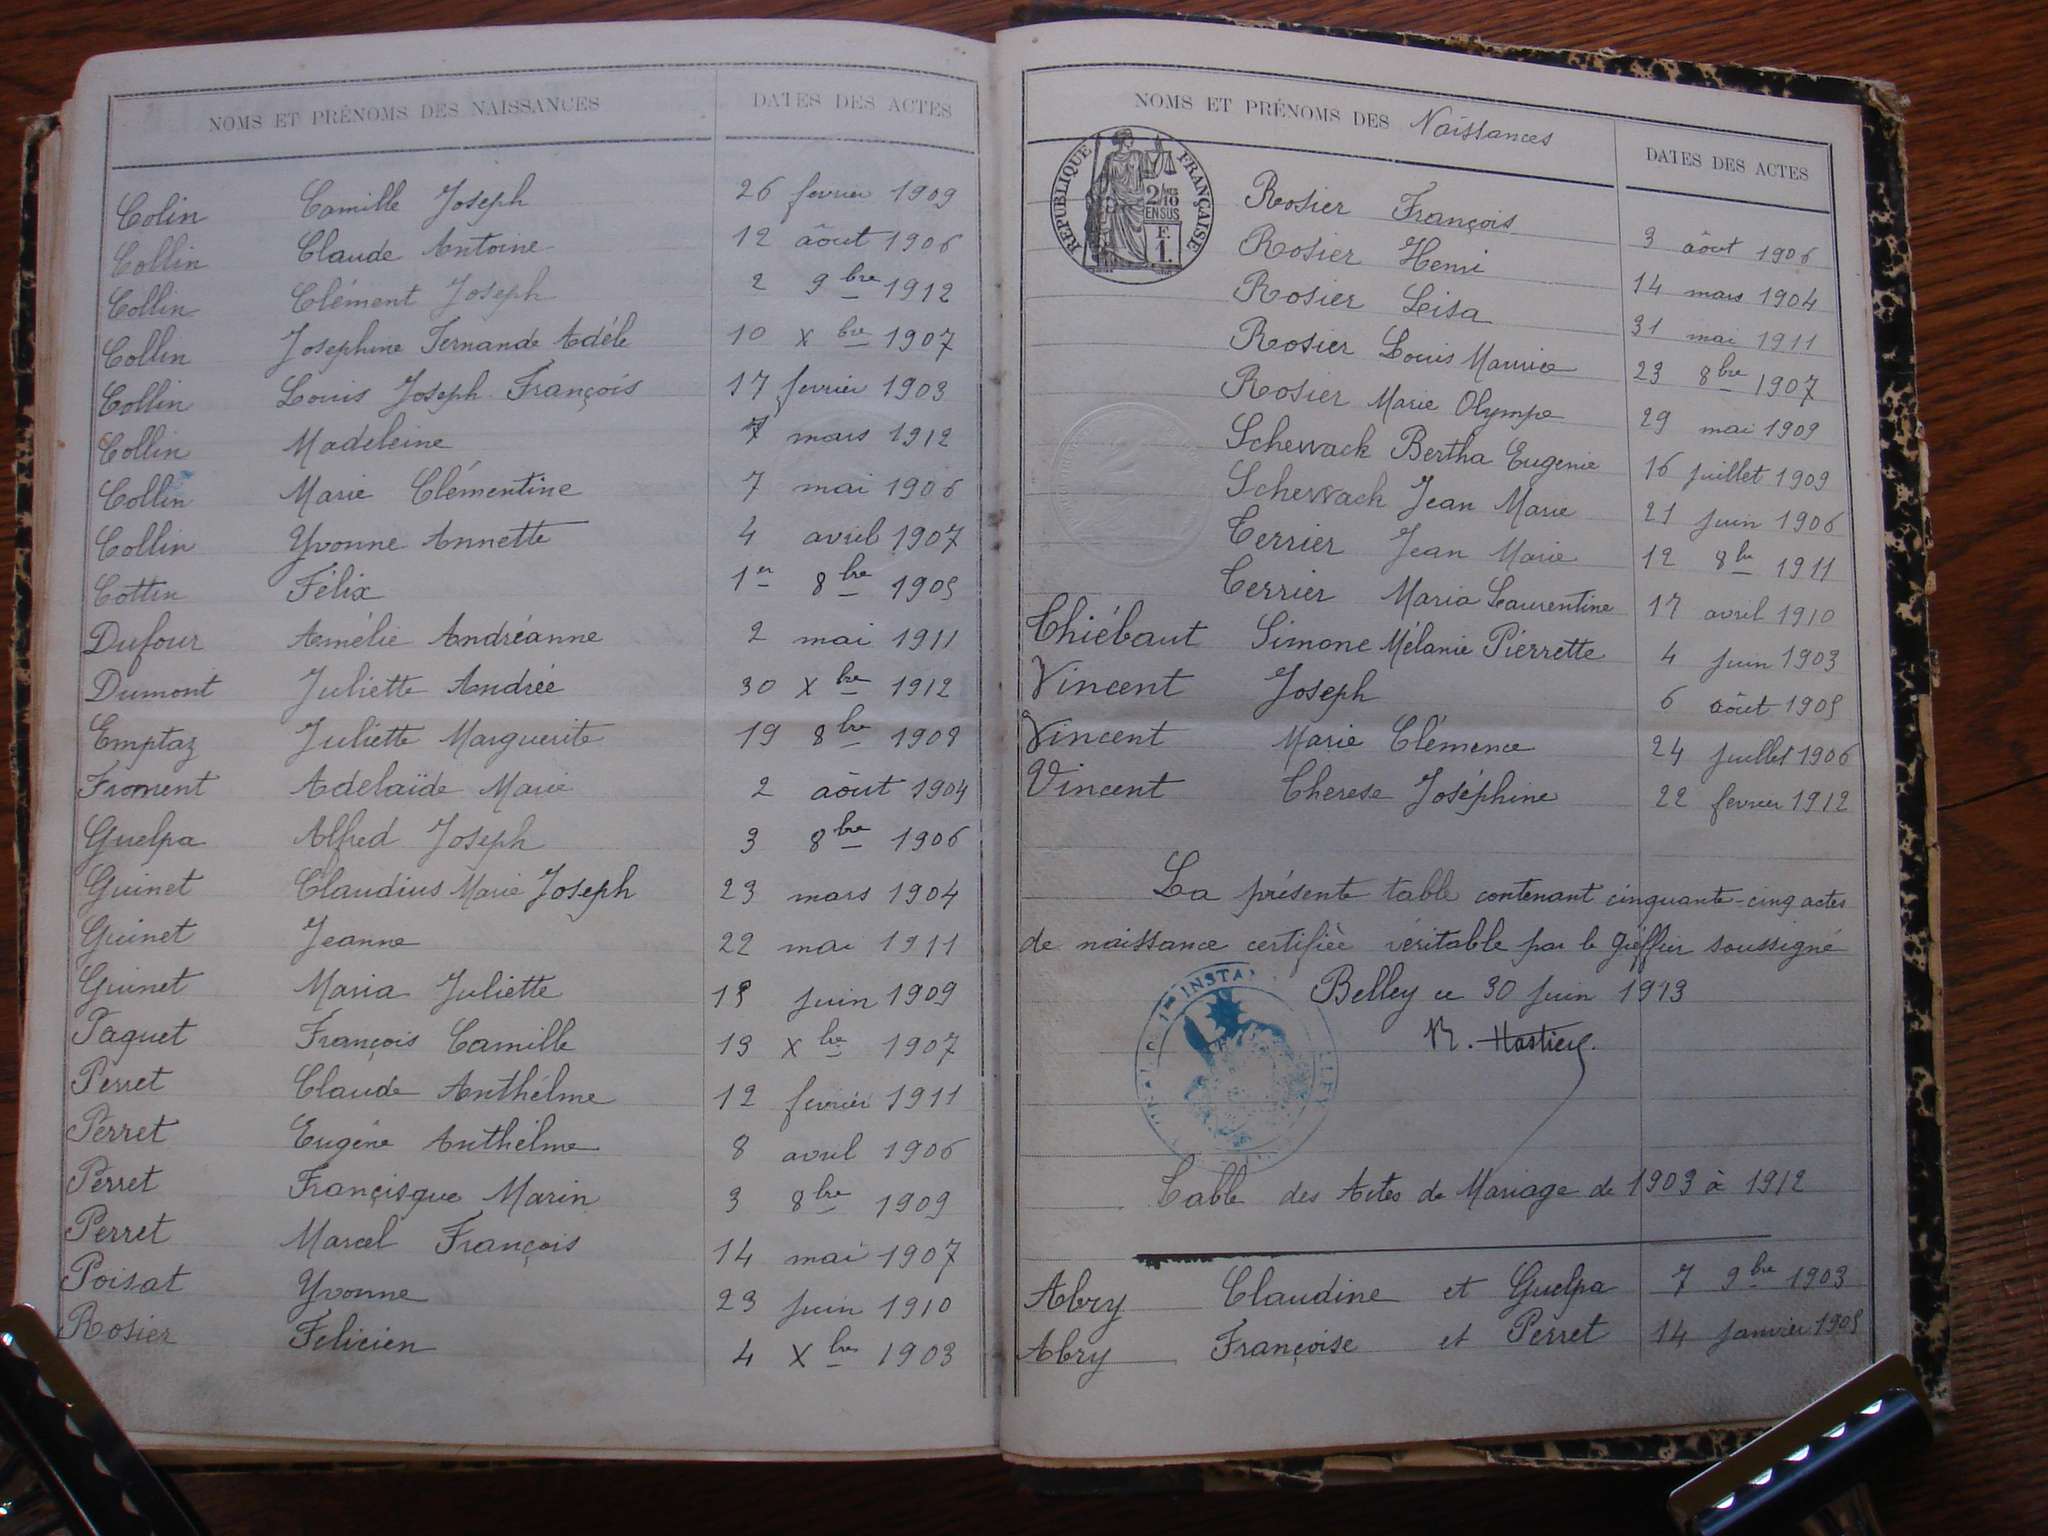 NOMS ET PRÉNOMS DES NAISSANCES DATES DES ACTES
Colin Camille Joseph 26 fevrier 1909
Collin Claude Antoine 12 âout 1906
Collin Clément Joseph 2 9bre 1912
Collin Josephine Fernande Adéle 10 Xbre 1907
Collin Louis Joseph François 17 fevrier 1903
Collin Madeleine 7 mars 1912
Collin Marie Clémentine 7 mai 1906
Collin Yvonne Annette 4 avril 1907
Cottin Félix 1er 8bre 1905
Dufour Amélie Andréanne 2 mai 1911
Dumont Juliette Andrée 30 Xbre 1912
Emptaz Juliette Marguerite 19 8bre 1908
Froment Adelaïde Marie 2 aôut 1904
Guelpa Alfred Joseph 3 8bre 1906
Guinet Claudius Marie Joseph 23 mars 1904
Guinet Jeanne 22 mai 1911
Guinet Maria Juliette juin 1909
Paquet François Camille 13 Xbre 1907
Perret Claude Anthélme 12 fevrier 1911
Perret Eugéne Anthélme 8 avril 1906
Perret Françisque Marin 3 8bre 1909
Perret Marcel François 14 mai 1907
Poisat Yvonne 23 juin 1910
Rosier Felicien 4 Xbre 1903
NOMS ET PRÉNOMS DES Naissances DATES DES ACTES
RÉPUBLIQUE FRANÇAISE
2/10
EN SUS
F.
1.
Rosier François 3 âout 1906
Rosier Henri 14 mars 1904
Rosier Lisa 31 mai 1911
Rosier Louis Maurice 23 8bre 1907
Rosier Marie Olympe 29 mai 1909
Schewack Bertha Eugenie 16 juillet 1909
Schewack Jean Marie 21 juin 1906
Terrier Jean Marie 12 8bre 1911
Terrier Maria Laurentine 17 avril 1910
Thiébaut Simone Mélanie Pierrette 4 juin 1903
Vincent Joseph 6 aôut 1905
Vincent Marie Clémence 24 juillet 1906
Vincent Therese Joséphine 22 fevrier 1912
La présente table contenant cinquante-cinq actes
de naissance certifiée véritable par le Greffier soussigné
Belley ce 30 juin 1913
INSTA
Table des Actes de Mariage de 1903 à 1912
Abry Claudine et Guelpa 7 9bre 1903
Abry Françoise et Perret 14 janvier 1905